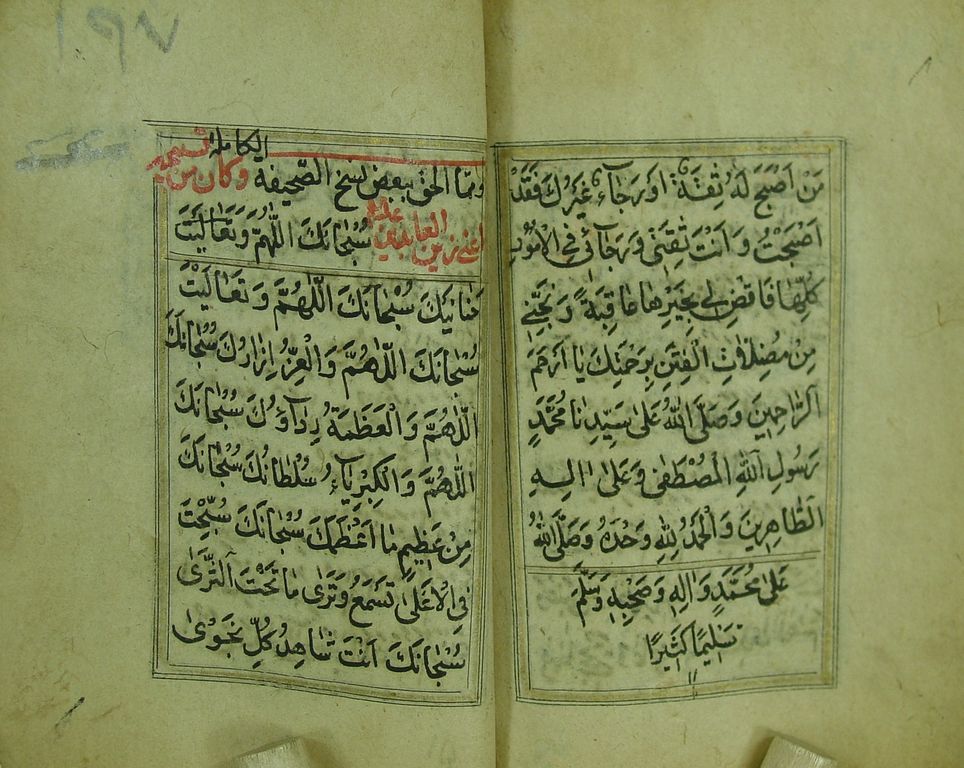 مَنْ اَصْبَحَ لَهُ ثِقَةٌ اَوْ رَجَاءٌ غَيْرُكَ فَقَدْ
اَصْبَحْتُ وَ اَنْتَ ثِقَتِي وَ رَجَائِي فِي الْاُمُورِ
كُلِّهَا فَاقْضِ لِي بِخَيْرِهَا عَاقِبَةً وَ نَجِّنِي
مِنْ مُضِلَّاتِ الْفِتَنِ بِرَحْمَتِكَ يَا اَرْحَمَ
الرَّاحِمِينَ وَ صَلَّى اللّٰهُ عَلَى سَيِّدِنَا مُحَمَّدٍ
رَسُولِ اللّٰهِ الْمُصْطَفٰى وَ عَلٰى اٰلِهِ
الطَّاهِرِينَ وَ الْحَمْدُ لِلّٰهِ وَحْدَهُ وَ صَلَّى اللّٰهُ
عَلٰى مُحَمَّدٍ وَ اٰلِهِ وَ صَحْبِهِ وَ سَلَّمَ
تَسْلِيمًا كَثِيرًا
الكاملة
ومما الحق ببعض نسخ الصّحيفة وكان من تسبيحه
اعني زين العابدين عليه سُبْحَانَكَ اللّٰهُمَّ وَ تَعَالَيْتَ
حَنَانَيْكَ سُبْحَانَكَ اللّٰهُمَّ وَ تَعَالَيْتَ
سُبْحَانَكَ اللّٰهُمَّ وَ الْعِزُّ اِزَارُكَ سُبْحَانَكَ
اللّٰهُمَّ وَ الْعَظَمَةُ رِدَاؤُكَ سُبْحَانَكَ
اللّٰهُمَّ وَ الْكِبْرِيَاءُ سُلْطَانُكَ سُبْحَانَكَ
مِنْ عَظِيمٍ مَا اَعْظَمَكَ سُبْحَانَكَ سُبِّحْتَ
فِي الْاَعْلٰى تَسْمَعُ وَ تَرٰى مَا تَحْتَ الثَّرٰى
سُبْحَانَكَ اَنْتَ شَاهِدُ كُلِّ نَجْوٰى